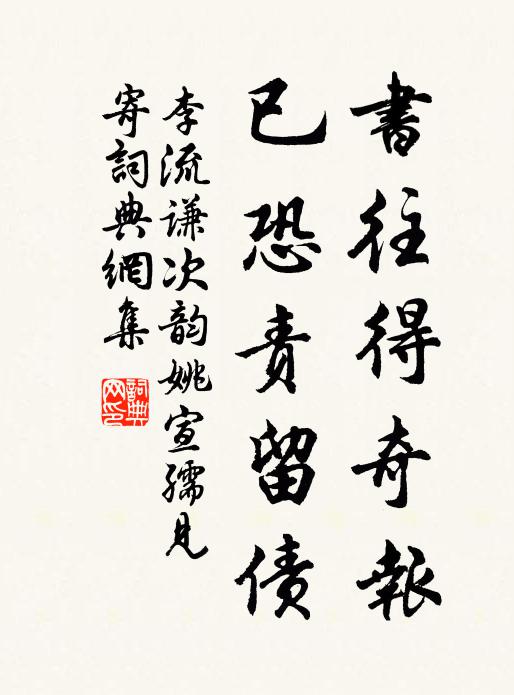 書往得奇報
已恐責留債
李流謙次韵姚宣孺見
寄詞典網集
詞典
网印